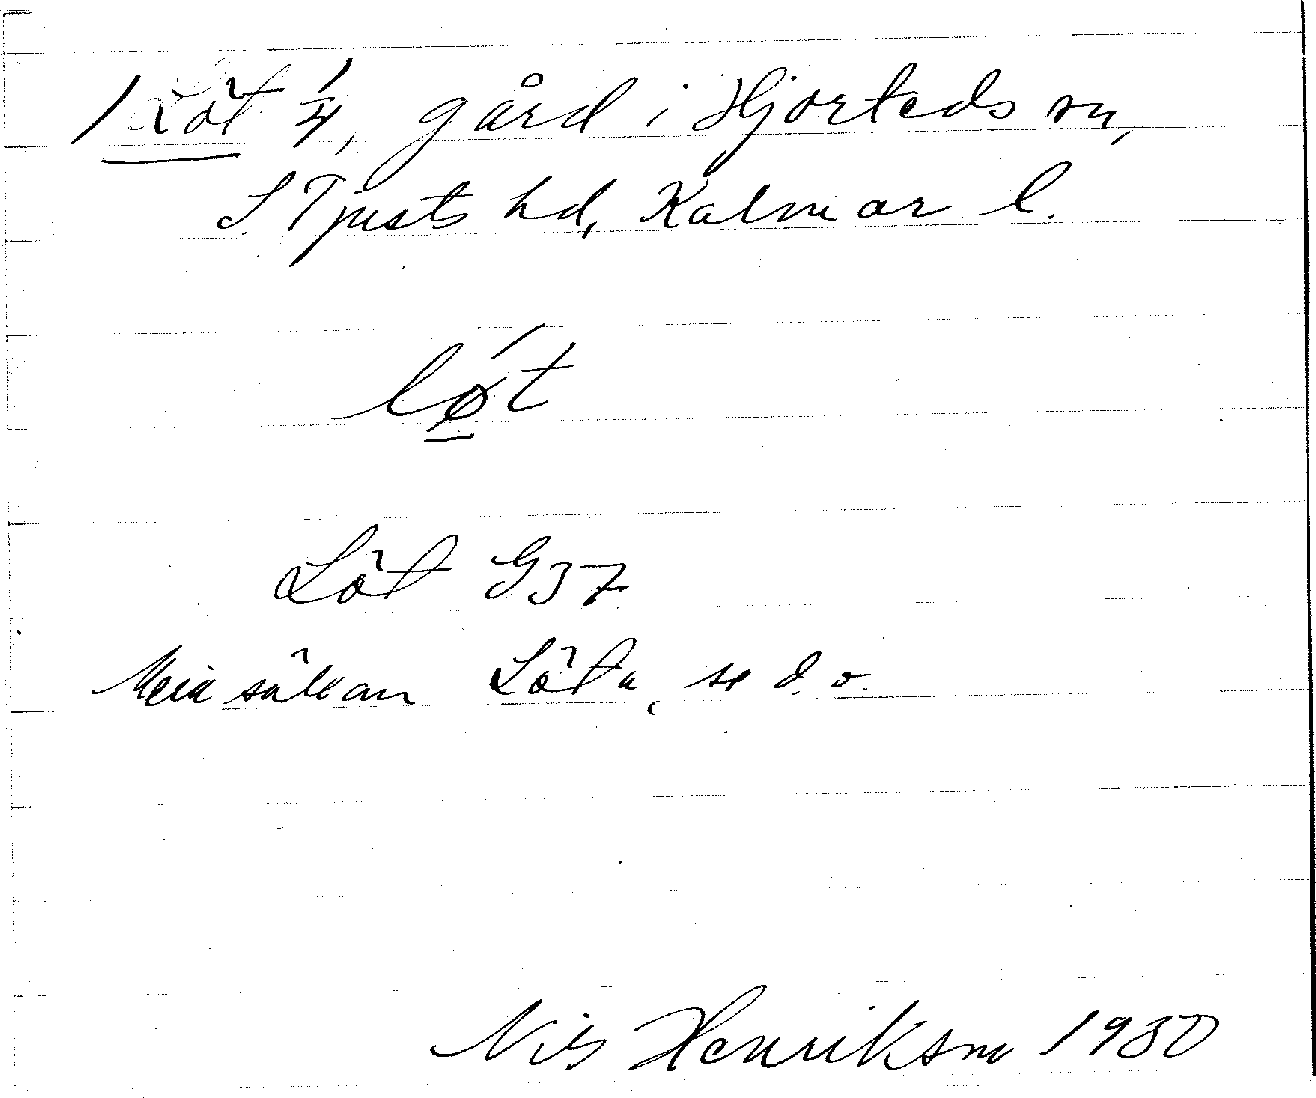 Löt 1/4, gård i Hjorteds sn,
S Tjusts hd, Kalmar l.
lǿ̲t
Löt G37
Löta, se d. o.
Nils Henriksson 1930